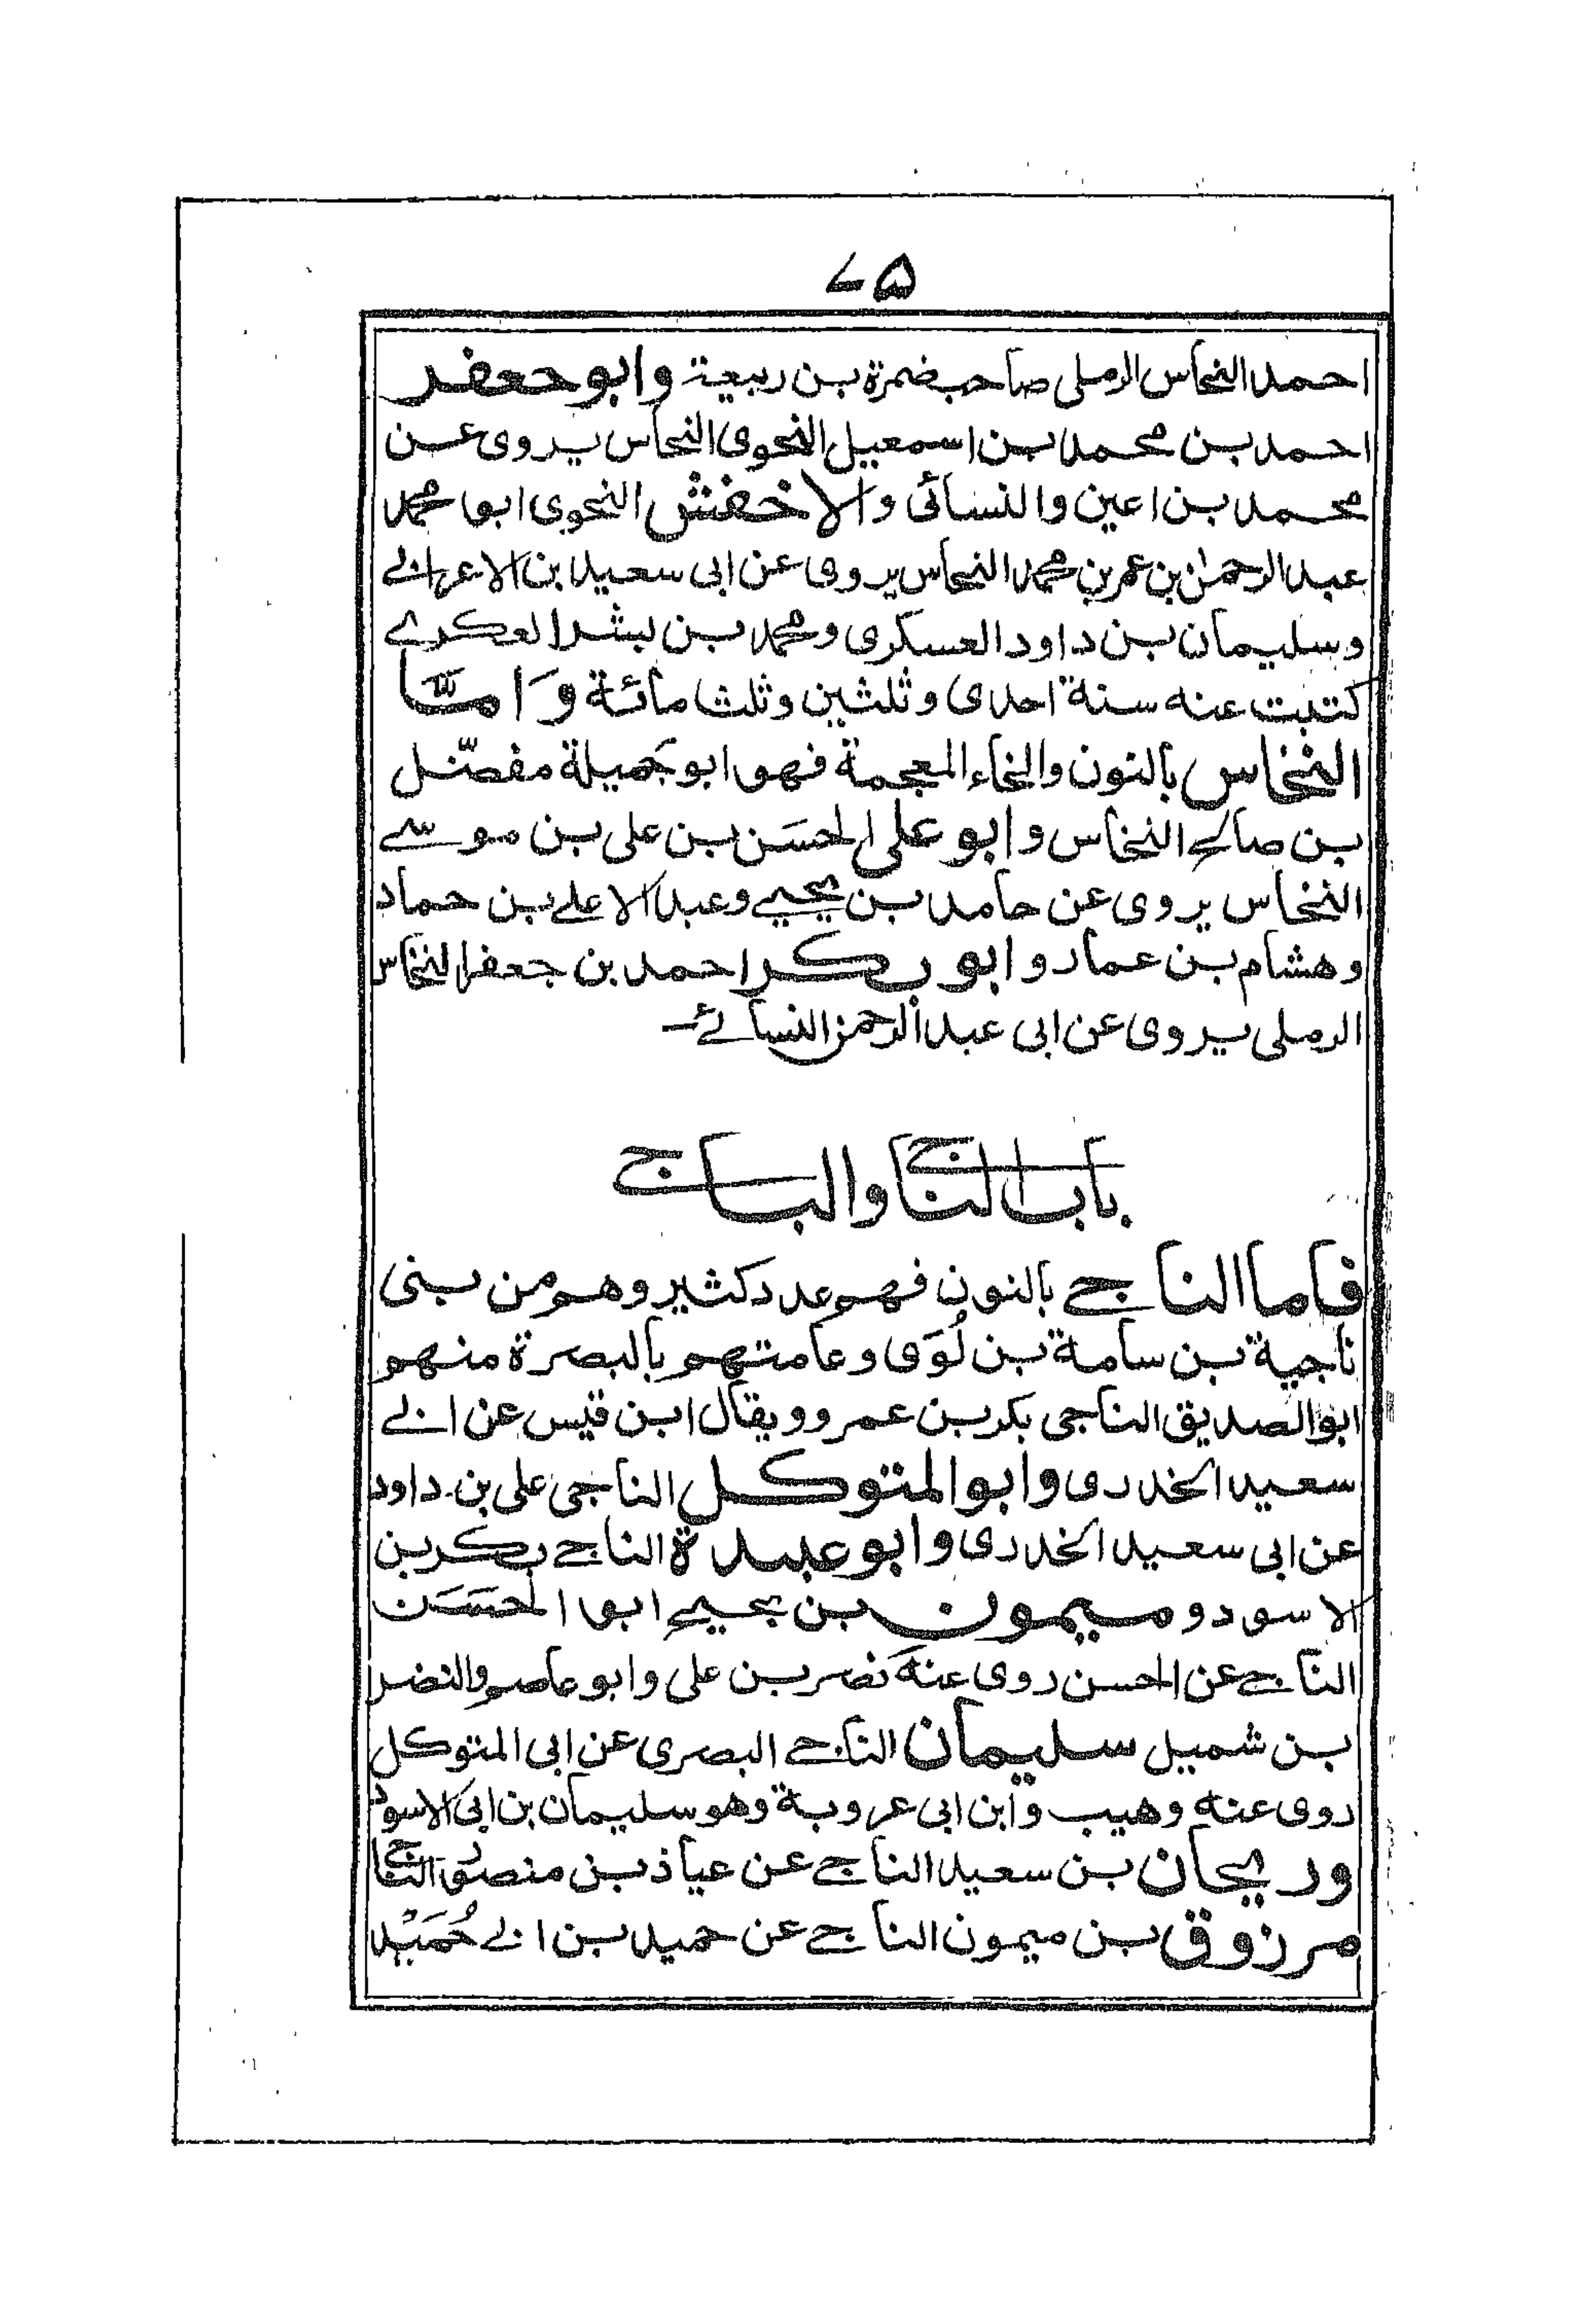 ٧٥
احمد النحاس الرملى صاحب ضمرة بن ربيعة وابو جعفر
احمد بن محمد بن اسمعيل النحوى النحاس يروى عن
محمد بن اعين والنسائى والاخفش النحوى ابو محمد
عبد الرحمن بن عمر بن محمد النحاس يروى عن ابى سعيد بن الاعرابے
وسليمان بن داود العسكرى ومحمد بن بشر العكرے
كتبت عنه سنة احدى وثلثين وثلث مائة وَامّا
النخاس بالنون والخاء المعجمة فهو ابو جَميلة مفضّل
بن صالح النخاس وابو على الحسَن بن على بن موسے
النخاس يروى عن حامد بن يحيے وعبد الاعلے بن حماد
وهشام بن عمار وابو بكر احمد بن جعفر النخاس
الرملى يروى عن ابى عبد الرحمن النسائے
باب الناجے والباجے
فاما الناجے بالنون فهم عدد كثير وهم من بنى
ناجية بن سامة بن لُوَى وعامتهم بالبصرة منهم
ابو الصديق الناجى بكر بن عمرو ويقال ابن قيس عن ابے
سعيد الخدرى وابو المتوكل الناجى على بن داود
عن ابى سعيد الخدرى وابو عبيدة الناجے بكر بن
الاسود وميمون بن يحيے ابو الحسَن
الناجے عن الحسن روى عنه نصر بن على وابو عاصم والنضر
بن شميل سليمان الناجے البصرى عن ابى المتوكل
روى عنه وهيب وابن ابى عروبة وهو سليمان بن ابى الاسود
وريحان بن سعيد الناجے عن عباد بن منصور الناجے
مرزوق بن ميمون الناجے عن حميد بن ابے حُمَيْد